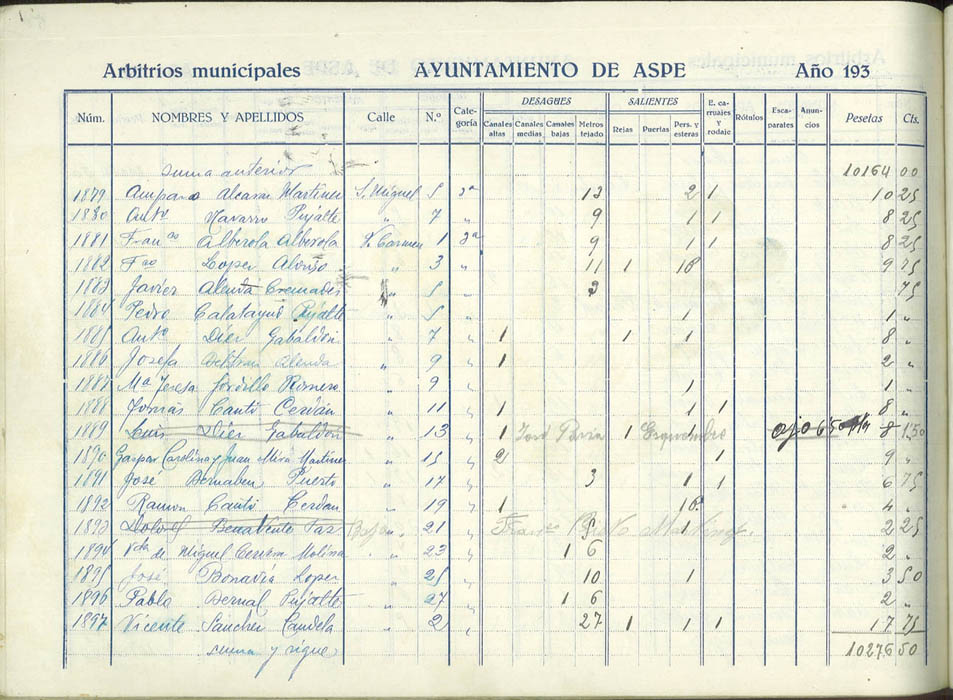 Arbitrios municipales AYUNTAMIENTO DE ASPE Año 193
Núm. NOMBRES Y APELLIDOS Calle N.º Cate-goría DESAGUES Canales altas Canales medias Canales bajas Metros tejado SALIENTES Rejas Puertas Pers. y esteras E. ca-rruajes y rodaje Rótulos Esca-parates Anun-cios Pesetas Cts.
suma anterior 10164 00
1879 Amparo Alcaraz Martinez S. Miguel 5 3ª 13 2 1 10 25
1880 Antº Navarro Pujalte " 7 " 9 1 1 8 25
1881 Franco Alberola Alberola V. Carmen 1 3ª 9 1 1 8 25
1882 Fco Lopez Alonso " 3 " 11 1 1 9 75
1883 Javier Alenda Cremades " 5 " 3 75
1884 Pedro Calatayud Pujalte " 5 " 1 1 "
1885 Antº Díez Gabaldón " 7 " 1 1 1 8 "
1886 Josefa Beltran Alenda " 9 " 1 2 "
1887 Mª Teresa Gordillo Romero " 9 " 1 1 "
1888 Tomás Cantó Cerdán " 11 " 1 1 1 8 "
1889 Luis Díez Gabaldón " 13 " 1 1 1 ojo 8 50
1890 Gaspar Carolina y Juan Mirá Martinez " 15 " 2 1 9 "
1891 José Bernabeu Puerto " 17 " 3 1 1 6 75
1892 Ramon Cantó Cerdan " 19 " 1 1 4 "
1893 Dolores Benavente Paz " 21 " 1 2 25
1894 Vda de Miguel Cerdan Molina " 23 " 1 6 2 "
1895 José Bonavía Lopez " 25 " 10 1 3 50
1896 Pablo Bernal Pujalte " 27 " 1 6 2 "
1897 Vicente Sanchez Candela " 2 " 27 1 1 1 17 75
suma y sigue 10276 50